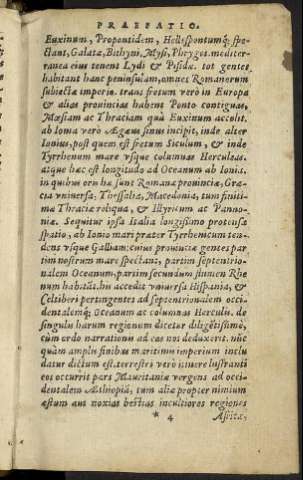 PRAEFATIO.
Euxinum, Propontidem, Hellespontumq; spe-
ctant, Galatæ, Bithyni, Mysi, Phryges. mediter-
ranea eius tenent Lydi & Pisidæ. tot gentes
habitant hanc peninsulam, omnes Romanorum
subiectæ imperio. trans fretum verò in Europa
& alias prouincias habent Ponto contiguas,
Mœsiam ac Thraciam quà Euxinum accolit.
ab Ionia verò Ægæus sinus incipit, inde alter
Ionius, post quem est fretum Siculum, & inde
Tyrrhenum mare vsque columnas Herculeas.
atque hæc est longitudo ad Oceanum ab Ionia.
in quibus oris hæ sunt Romanæ prouinciæ, Græ-
cia vniuersa, Thessalia, Macedonia, tum finiti-
mæ Thraciæ reliqua, & Illyricum ac Panno-
niæ. Sequitur ipsa Italia longissimo protensa
spatio, ab Ionio mari præter Tyrrhenicum ten-
dens vsque Galliam: cuius prouinciæ gentes par-
tim nostrum mare spectant, partim septentrio-
nalem Oceanum, partim secundum flumen Rhe
num habitãt. his accedit vniuersa Hispania, &
Celtiberi pertingentes ad septentrionalem occi-
dentalemq; Oceanum ac columnas Herculis. de
singulis harum regionum dicetur diligẽtissimè,
cùm ordo narrationis ad eas nos deduxerit. nũc
quàm amplis finibus maritimis imperium inclu
datur dictum est. terrestri verò itinere lustranti
eos occurrit pars Mauritaniæ vergens ad occi-
dentalem Æthiopiã, tum aliæ propter nimium
æstum aut noxias bestias incultiores regiones
* 4